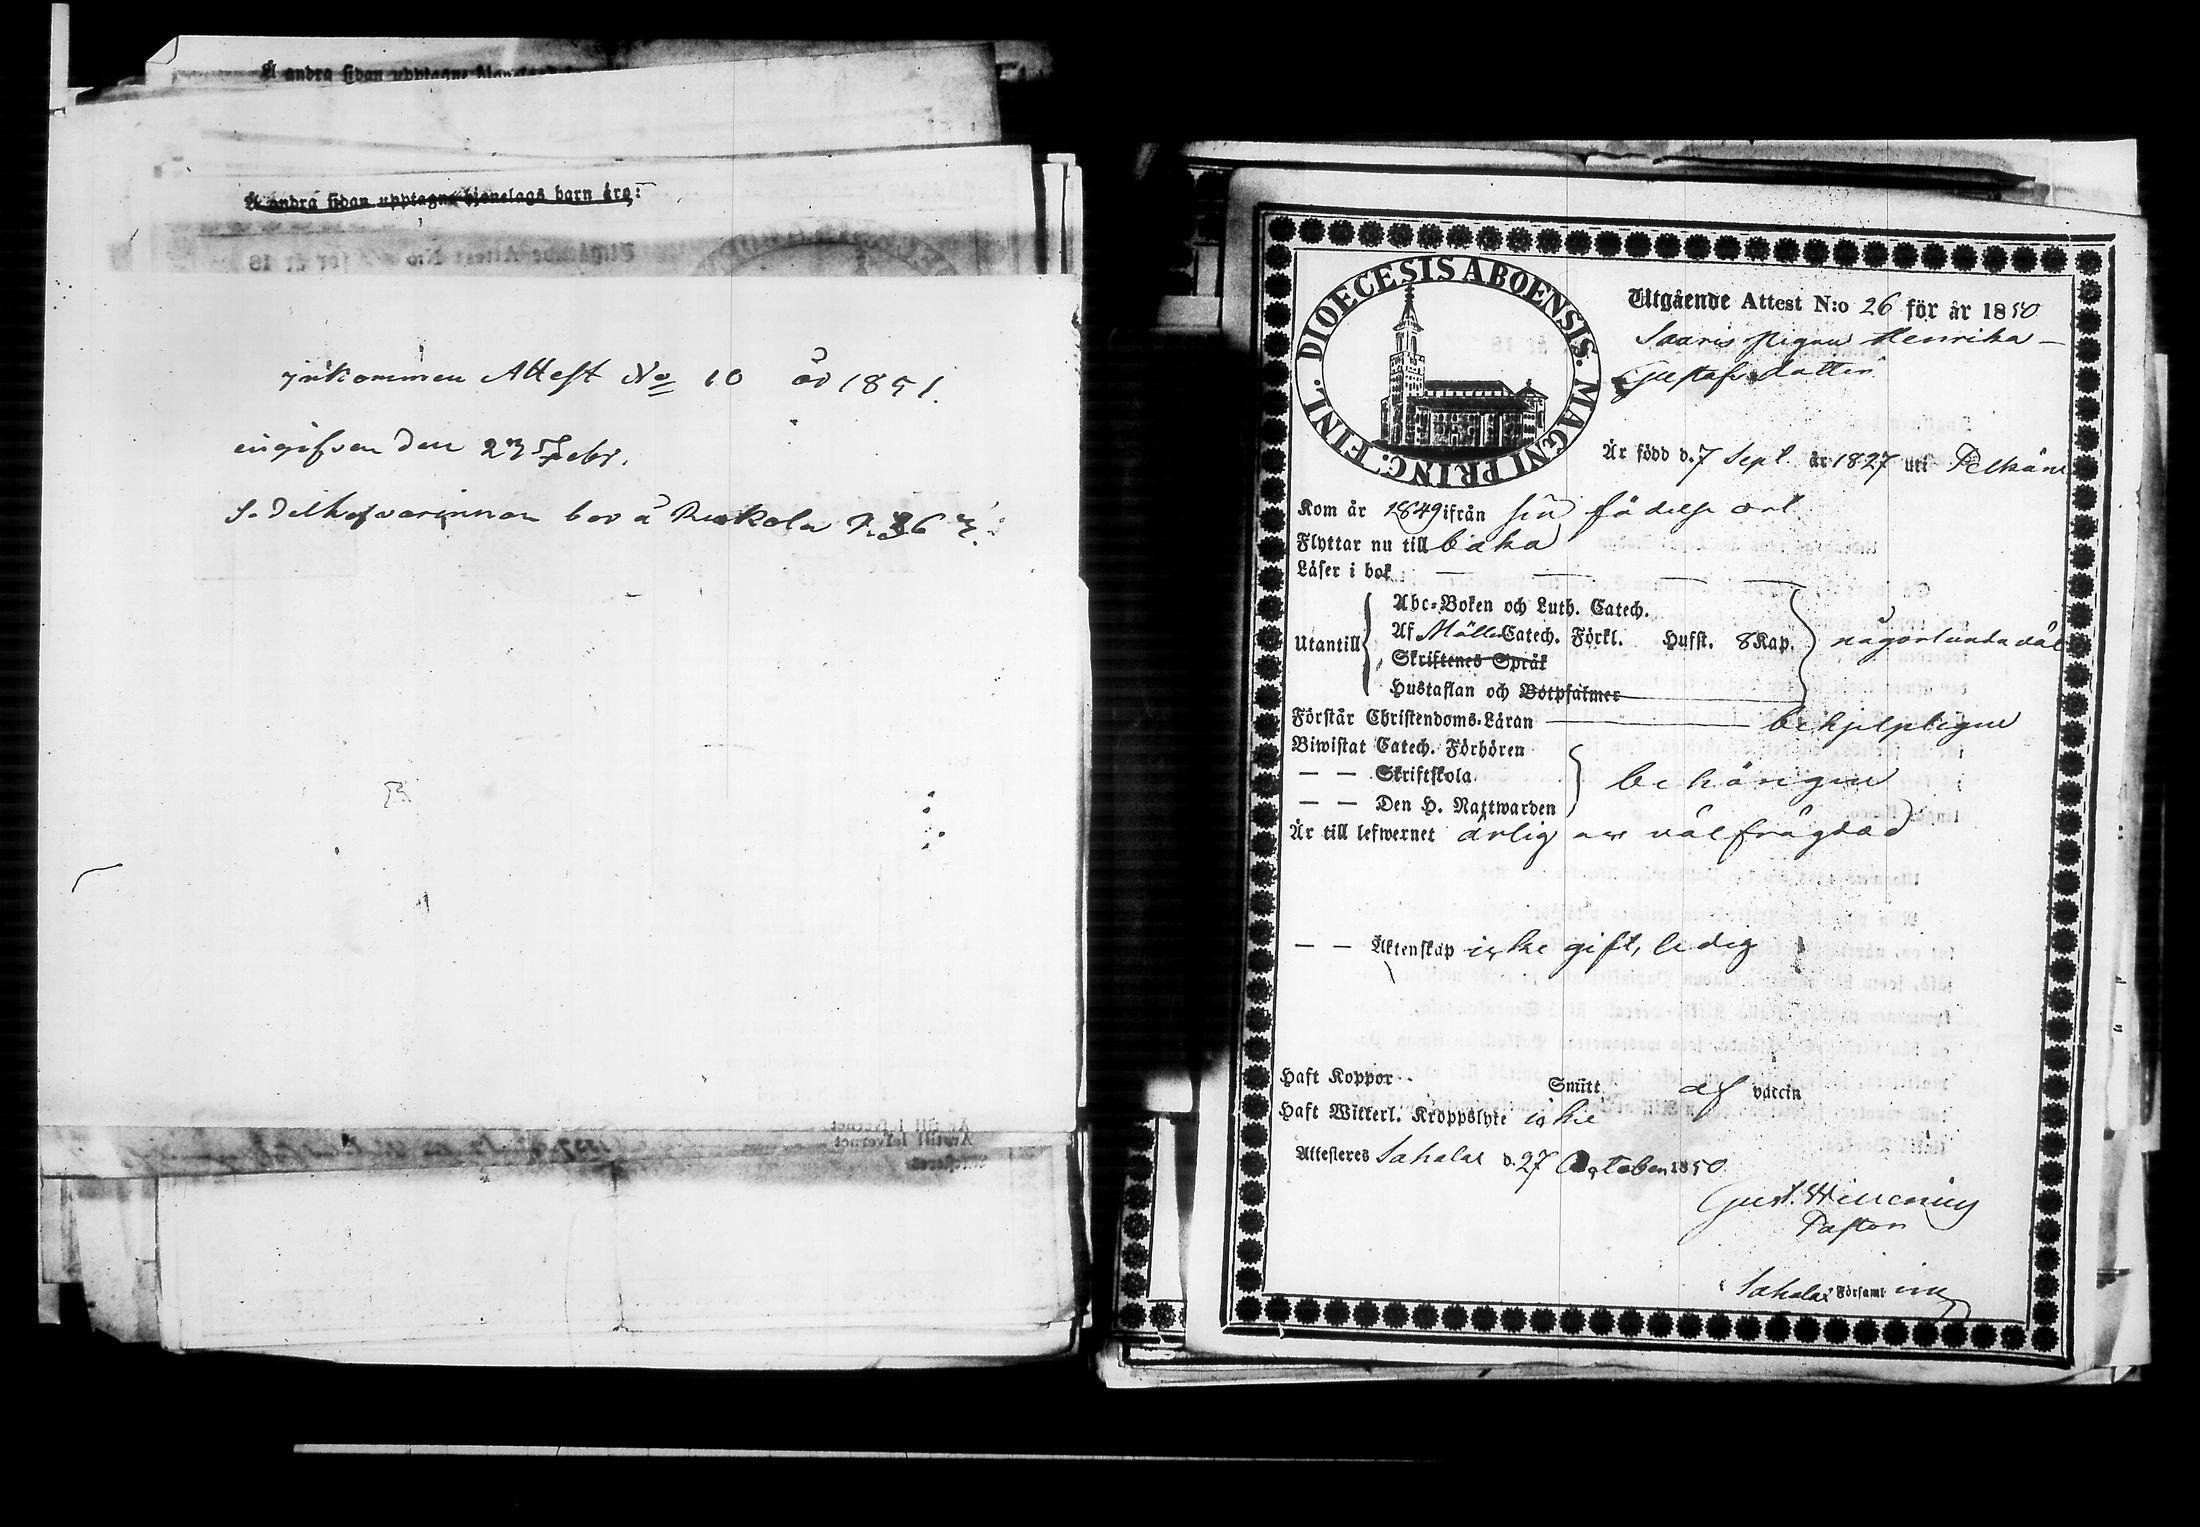 Å andra sidan upptagne
Å andra sidan upptagne hjonelags barn äro:
inkommen Attest No 10 år 1851.
ingifven den 23 Febr.
Sedelhafvarinnan bor å Ruokola
DIOECESIS ABOENSIS. MAGNI PRINC. FINL.
Utgående Attest N:o 26 för år 1850
Saaris Pigan Henrika
Gustafsdotter
Är född d. 7 Sept. år 1827 uti Pelkäne
Kom år 1849 ifrån sin födelse ort
Flyttar nu till baka
Läser i bok
Utantill
Abc-Boken och Luth. Catech.
Af Möller Catech. Förkl. Hufst. 8 Kap.
någorlunda väl
Skriftenes Språk
Hustaflan och Botpsalmer
Förstår Christendoms-Läran behjelpligen
Biwistat Catech. Förhören
— — Skriftskola
behörigen
— — Den H. Nattwarden
Är till lefwernet ärlig och välfrägdad
— — Äktenskap icke gift, ledig
Haft Koppor Smitt af vaccin
Haft Witterl. Kroppslyte icke
Attesteres Sahalax d. 27 October 1850
Gust. Willenius
Pastor
Sahalax Församling